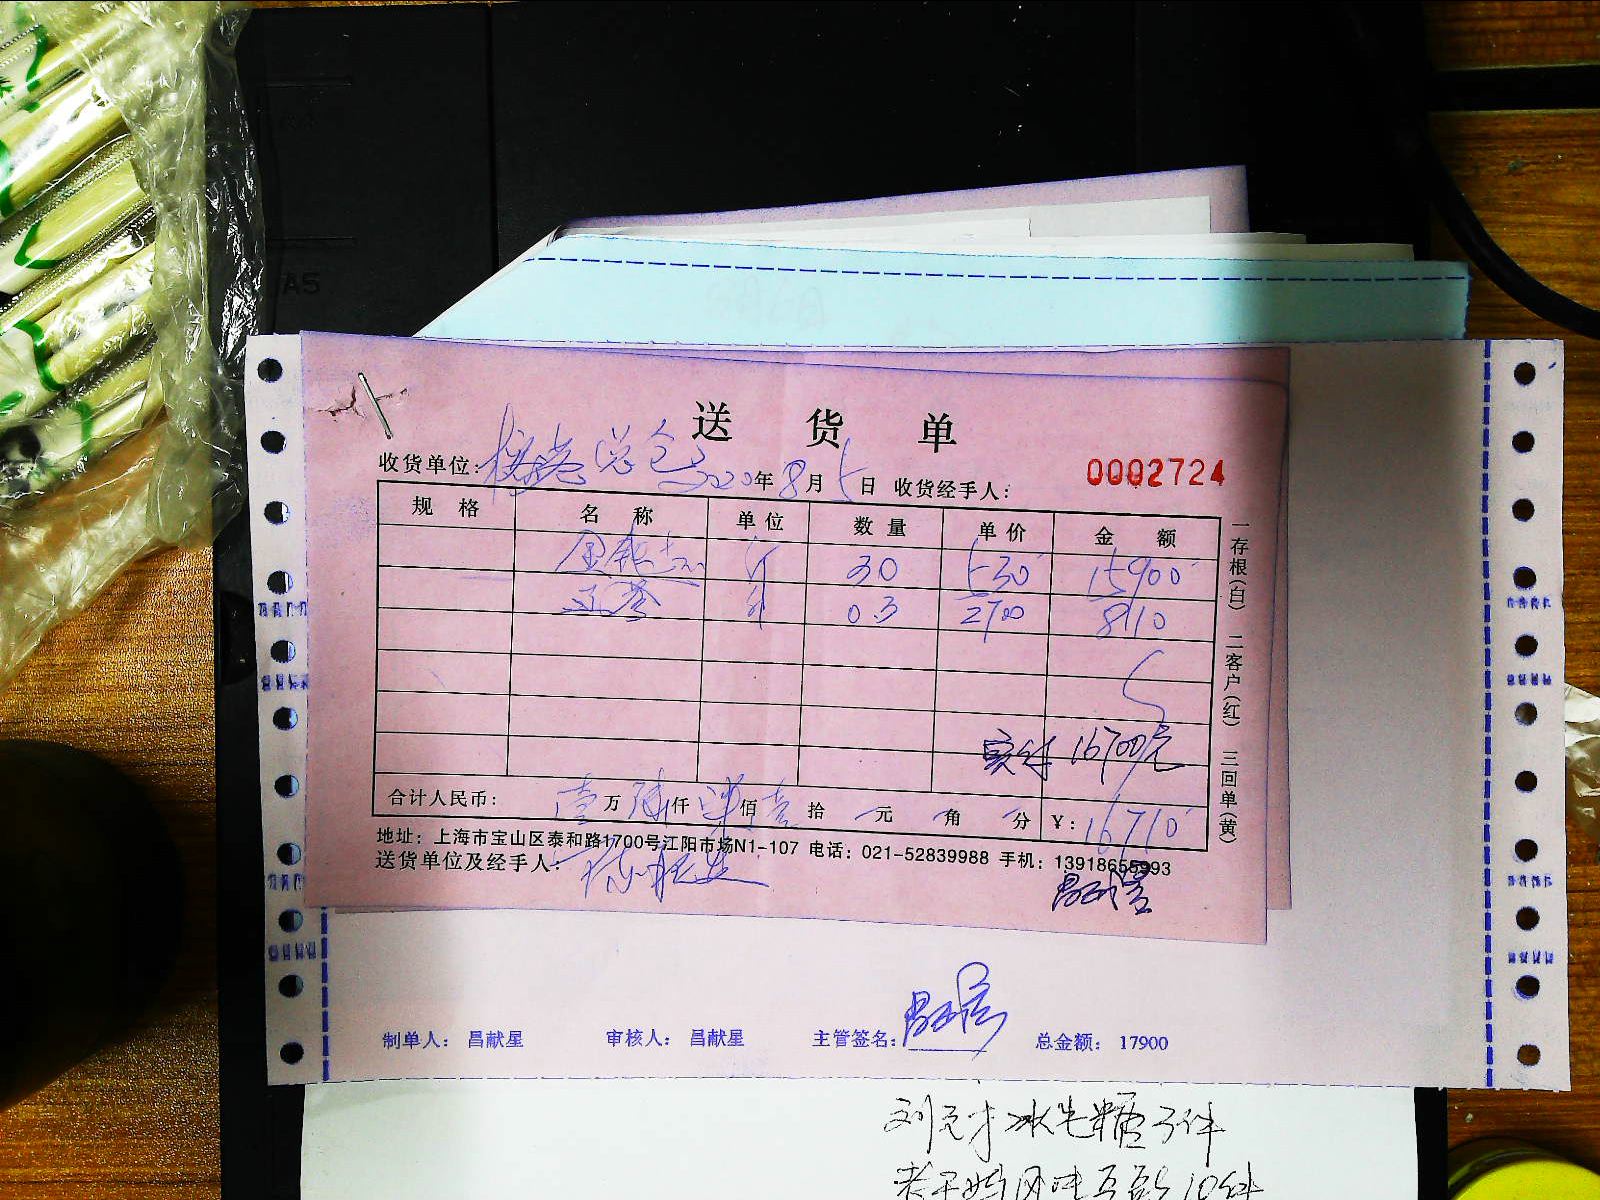 A5
送货单
收货单位: 总仓 2020年8月5日 收货经手人:
0002724
规格 名称 单位 数量 单价 金额
斤 30 530 15900
斤 0.3 2700 810
实付 16700元
合计人民币: 壹万陆仟柒佰壹拾 元 角 分 ¥: 16710
地址: 上海市宝山区泰和路1700号江阳市场N1-107 电话: 021-52839988 手机: 13918655993
送货单位及经手人:
一存根(白) 二客户(红) 三回单(黄)
制单人: 昌献星 审核人: 昌献星 主管签名: 总金额: 17900